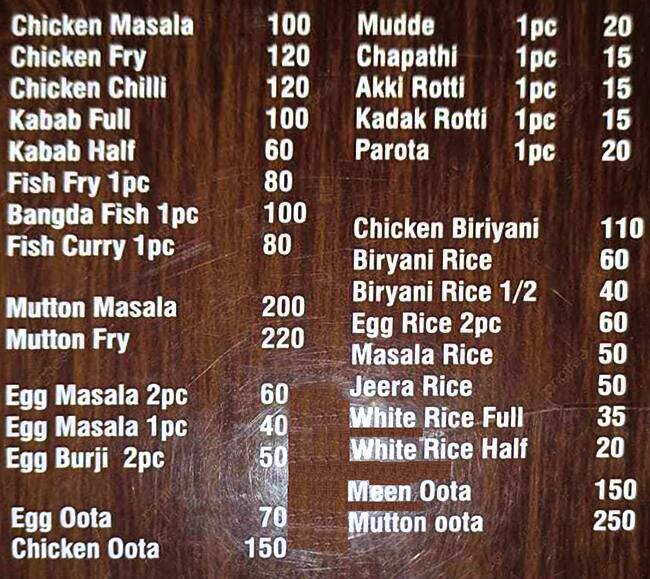 Chicken Masala 100
Chicken Fry 120
Chicken Chilli 120
Kabab Full 100
Kabab Half 60
Fish Fry 1pc 80
Bangda Fish 1pc 100
Fish Curry 1pc 80
Mutton Masala 200
Mutton Fry 220
Egg Masala 2pc 60
Egg Masala 1pc 40
Egg Burji 2pc 50
Egg Oota 70
Chicken Oota 150
Mudde 1pc 20
Chapathi 1pc 15
Akki Rotti 1pc 15
Kadak Rotti 1pc 15
Parota 1pc 20
Chicken Biriyani 110
Biryani Rice 60
Biryani Rice 1/2 40
Egg Rice 2pc 60
Masala Rice 50
Jeera Rice 50
White Rice Full 35
White Rice Half 20
Meen Oota 150
Mutton oota 250